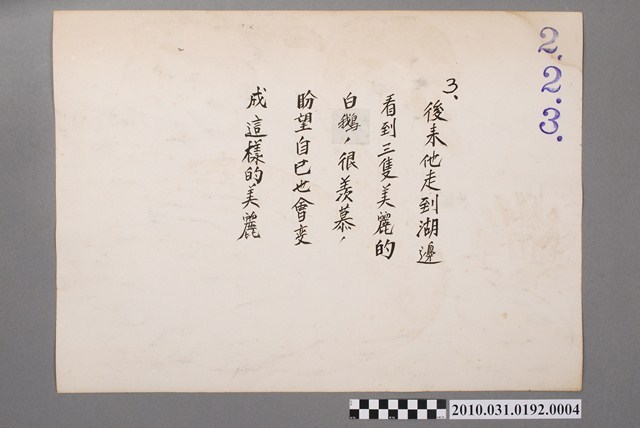 2.2.3.
3、後来他走到湖邊
看到三隻美麗的
白鵝，很羨慕，
盼望自已也會变
成這樣的美麗
2010.031.0192.0004